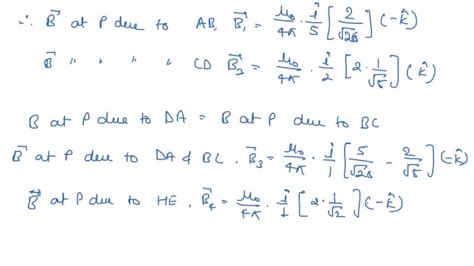 ∴ B⃗ at P due to AB, B⃗₁ = μ₀/4π · i/5 [2/√26] (-k̂)
B⃗ " " " " CD B⃗₂ = μ₀/4π · i/2 [2 · 1/√5] (k̂)
B at P due to DA = B at P due to BC
B⃗ at P due to DA & BC, B⃗₃ = μ₀/4π · i/1 [5/√26 - 2/√5] (-k̂)
B⃗ at P due to HE, B⃗₄ = μ₀/4π · i/1 [2 · 1/√2] (-k̂)